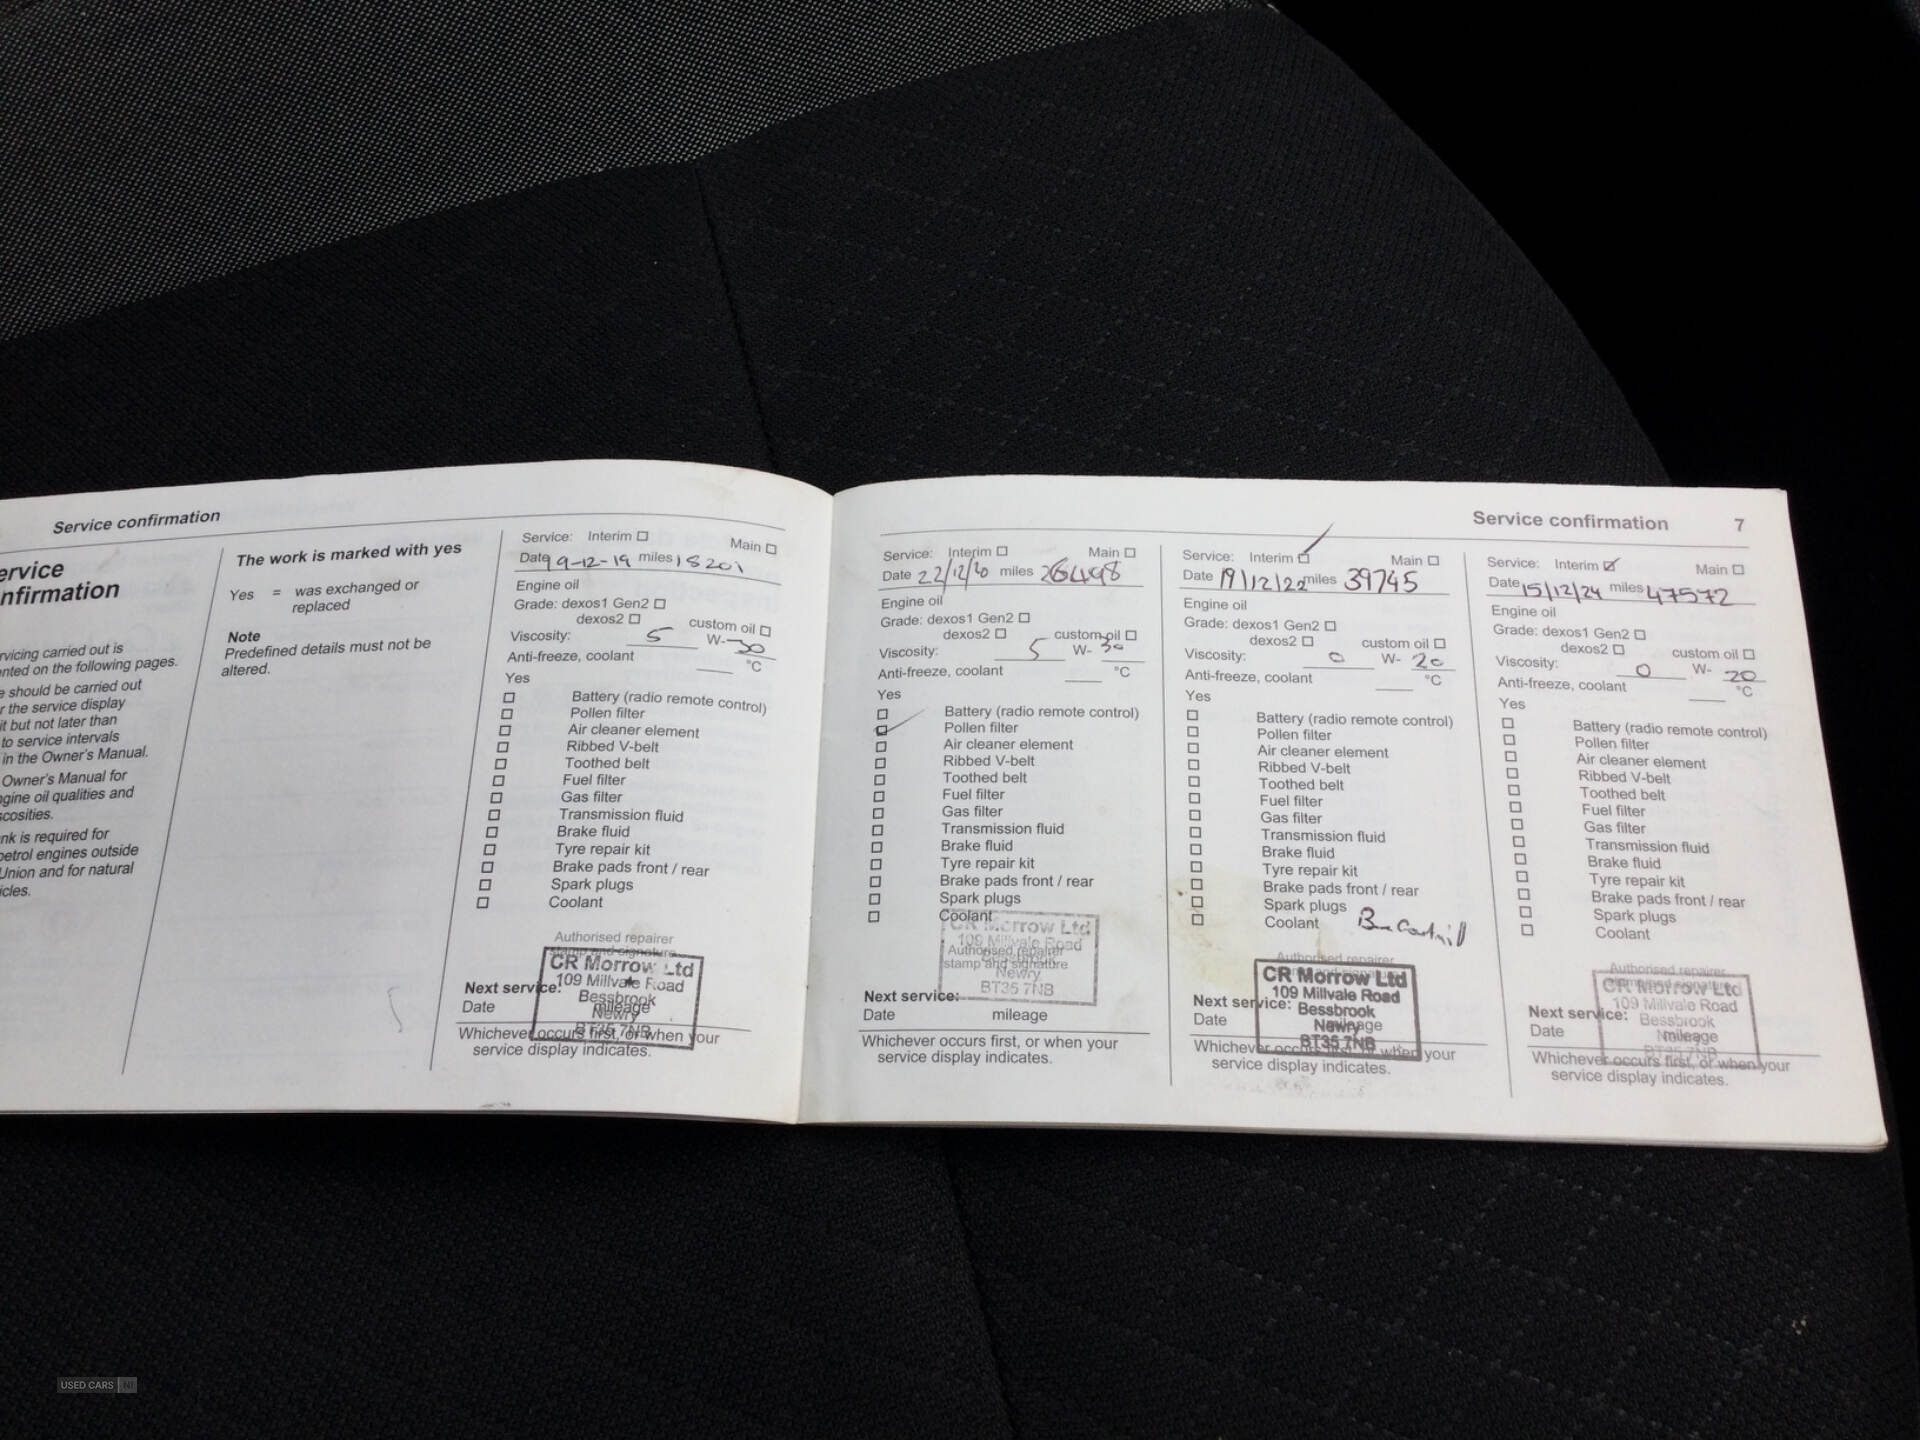 Service confirmation
ervice
nfirmation
rvicing carried out is
nted on the following pages.
e should be carried out
r the service display
it but not later than
to service intervals
in the Owner's Manual.
Owner's Manual for
gine oil qualities and
scosities.
nk is required for
petrol engines outside
Union and for natural
icles.
The work is marked with yes
Yes = was exchanged or
replaced
Note
Predefined details must not be
altered.
Service: Interim ☐ Main ☐
Date 19-12-19 miles 18201
Engine oil
Grade: dexos1 Gen2 ☐
dexos2 ☐ custom oil ☐
Viscosity: 5 W- 30
Anti-freeze, coolant °C
Yes
☐ Battery (radio remote control)
☐ Pollen filter
☐ Air cleaner element
☐ Ribbed V-belt
☐ Toothed belt
☐ Fuel filter
☐ Gas filter
☐ Transmission fluid
☐ Brake fluid
☐ Tyre repair kit
☐ Brake pads front / rear
☐ Spark plugs
☐ Coolant
Authorised repairer
stamp and signature
CR Morrow Ltd
109 Millvale Road
Bessbrook
Newry
BT35 7NB
Next service:
Date mileage
Whichever occurs first, or when your
service display indicates.
Service confirmation 7
Service: Interim ☐ Main ☐
Date 22/12/20 miles 26498
Engine oil
Grade: dexos1 Gen2 ☐
dexos2 ☐ custom oil ☐
Viscosity: 5 W- 30
Anti-freeze, coolant °C
Yes
☐ Battery (radio remote control)
☑ Pollen filter
☐ Air cleaner element
☐ Ribbed V-belt
☐ Toothed belt
☐ Fuel filter
☐ Gas filter
☐ Transmission fluid
☐ Brake fluid
☐ Tyre repair kit
☐ Brake pads front / rear
☐ Spark plugs
☐ Coolant
Authorised repairer
stamp and signature
CR Morrow Ltd
109 Millvale Road
Bessbrook
Newry
BT35 7NB
Next service:
Date mileage
Whichever occurs first, or when your
service display indicates.
Service: Interim ☑ Main ☐
Date 19/12/22 miles 39745
Engine oil
Grade: dexos1 Gen2 ☐
dexos2 ☐ custom oil ☐
Viscosity: 0 W- 20
Anti-freeze, coolant °C
Yes
☐ Battery (radio remote control)
☐ Pollen filter
☐ Air cleaner element
☐ Ribbed V-belt
☐ Toothed belt
☐ Fuel filter
☐ Gas filter
☐ Transmission fluid
☐ Brake fluid
☐ Tyre repair kit
☐ Brake pads front / rear
☐ Spark plugs
☐ Coolant
Authorised repairer
stamp and signature
CR Morrow Ltd
109 Millvale Road
Bessbrook
Newry
BT35 7NB
Next service:
Date mileage
Whichever occurs first, or when your
service display indicates.
Service: Interim ☑ Main ☐
Date 15/12/24 miles 47572
Engine oil
Grade: dexos1 Gen2 ☐
dexos2 ☐ custom oil ☐
Viscosity: 0 W- 20
Anti-freeze, coolant °C
Yes
☐ Battery (radio remote control)
☐ Pollen filter
☐ Air cleaner element
☐ Ribbed V-belt
☐ Toothed belt
☐ Fuel filter
☐ Gas filter
☐ Transmission fluid
☐ Brake fluid
☐ Tyre repair kit
☐ Brake pads front / rear
☐ Spark plugs
☐ Coolant
Authorised repairer
stamp and signature
CR Morrow Ltd
109 Millvale Road
Bessbrook
Newry
BT35 7NB
Next service:
Date mileage
Whichever occurs first, or when your
service display indicates.
USED CARS NI